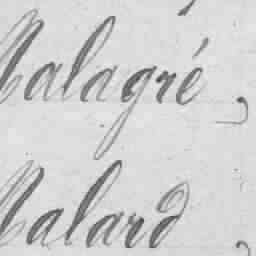 Malagré,
Malard,